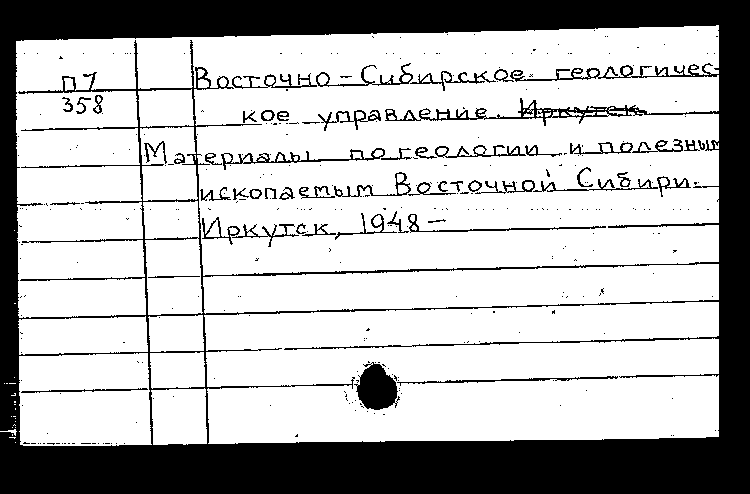 П7
358
Восточно-Сибирское геологичес-
кое управление. Иркутск
Материалы по геологии и полезным
ископаемым Восточной Сибири.
Иркутск, 1948 –